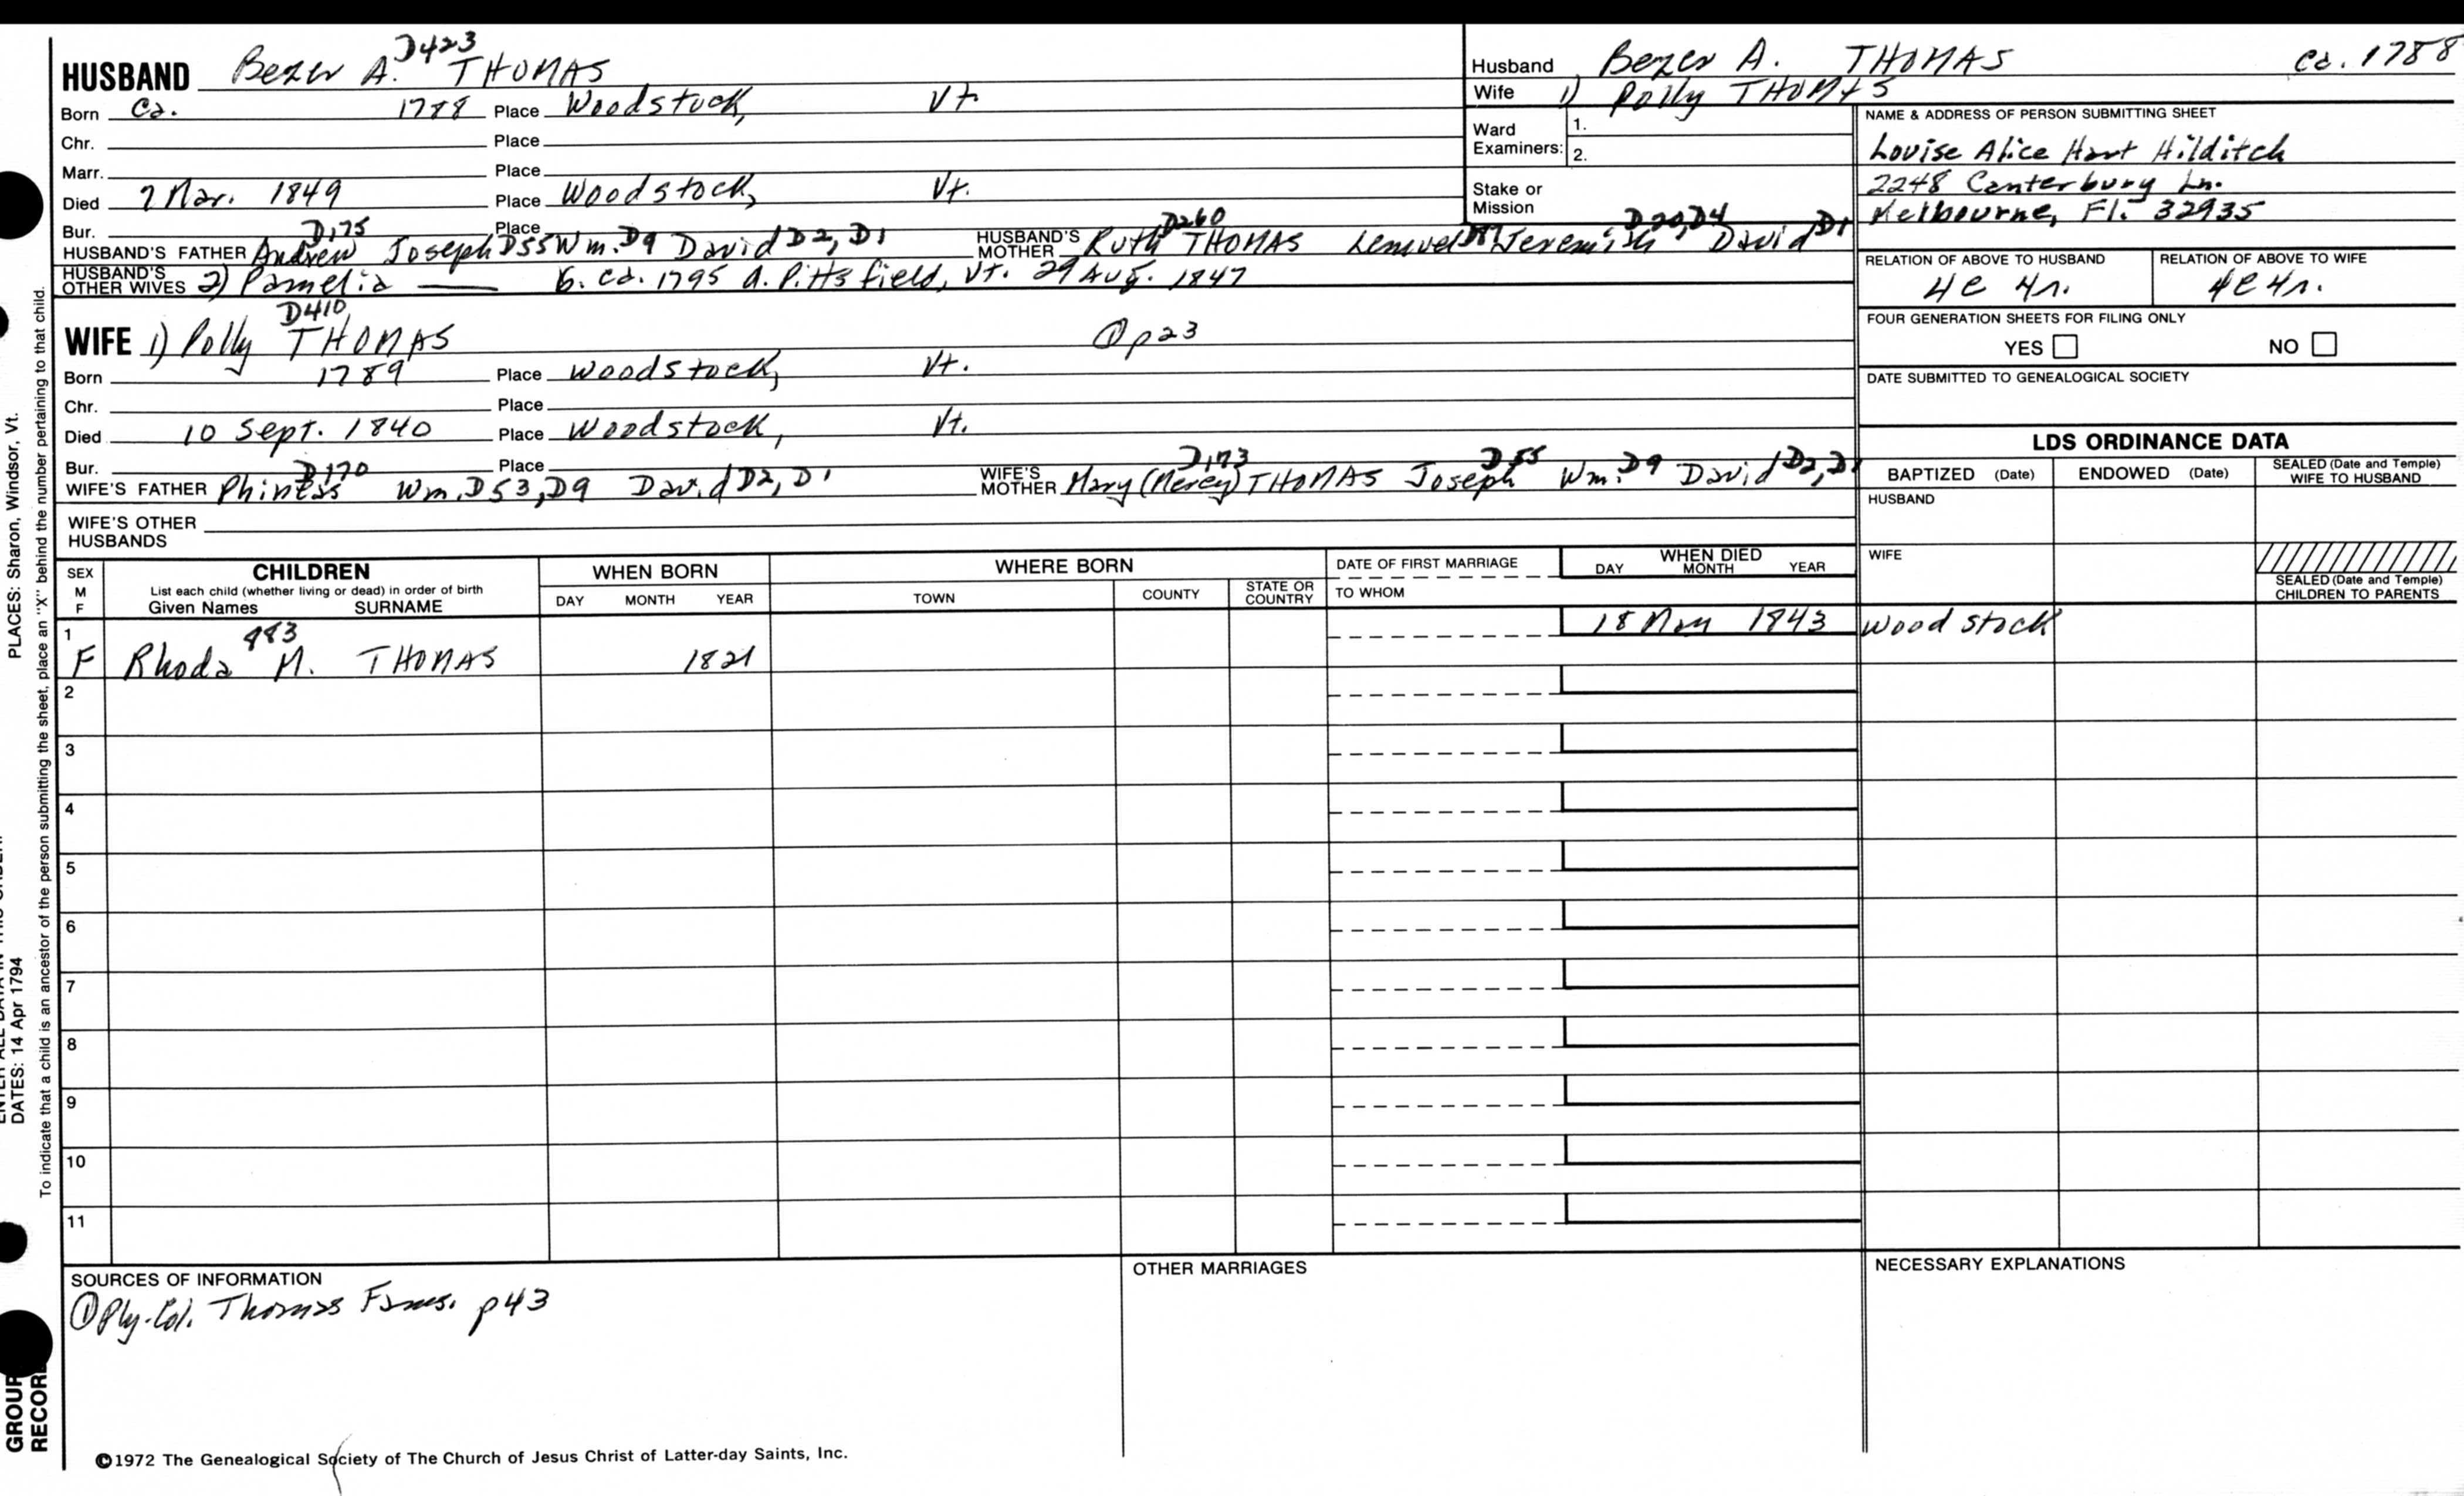 HUSBAND Bezer A. D423 THOMAS
Born Ca. 1788 Place Woodstock, Vt.
Chr. Place
Marr. Place
Died 7 Mar. 1849 Place Woodstock, Vt.
Bur. Place
HUSBAND'S FATHER Andrew D175 Joseph D55 Wm. D9 David D2, D1 HUSBAND'S MOTHER Ruth D260 THOMAS Lemuel Jeremiah D20, D4 David D1
HUSBAND'S OTHER WIVES 2) Pamelia —— b. ca. 1795 d. Pittsfield, Vt. 29 Aug. 1847
WIFE 1) Polly D410 THOMAS ① p23
Born 1789 Place Woodstock, Vt.
Chr. Place
Died 10 Sept. 1840 Place Woodstock, Vt.
Bur. Place
WIFE'S FATHER Phineas D170 Wm. D53, D9 David D2, D1 WIFE'S MOTHER Mary (Mercy) D173 THOMAS Joseph D55 Wm. D9 David D2, D1
WIFE'S OTHER HUSBANDS
Husband Bezer A. THOMAS Ca. 1788
Wife 1) Polly THOMAS
Ward Examiners: 1. 2.
Stake or Mission
NAME & ADDRESS OF PERSON SUBMITTING SHEET
Louise Alice Hart Hilditch
2248 Canterbury Ln.
Melbourne, Fl. 32935
RELATION OF ABOVE TO HUSBAND RELATION OF ABOVE TO WIFE
4c 4r. 4c 4r.
FOUR GENERATION SHEETS FOR FILING ONLY
YES NO
DATE SUBMITTED TO GENEALOGICAL SOCIETY
LDS ORDINANCE DATA
BAPTIZED (Date) ENDOWED (Date) SEALED (Date and Temple) WIFE TO HUSBAND
HUSBAND
WIFE
SEALED (Date and Temple) CHILDREN TO PARENTS
SEX M F CHILDREN WHEN BORN WHERE BORN DATE OF FIRST MARRIAGE WHEN DIED
List each child (whether living or dead) in order of birth
Given Names SURNAME DAY MONTH YEAR TOWN COUNTY STATE OR COUNTRY TO WHOM DAY MONTH YEAR
1 983 18 May 1843 Woodstock
F Rhoda M. THOMAS 1821
2
3
4
5
6
7
8
9
10
11
SOURCES OF INFORMATION OTHER MARRIAGES NECESSARY EXPLANATIONS
① Ply. Col. Thomas Fams. p43
©1972 The Genealogical Society of The Church of Jesus Christ of Latter-day Saints, Inc.
PLACES: Sharon, Windsor, Vt.
DATES: 14 Apr 1794
To indicate that a child is an ancestor of the person submitting the sheet, place an "X" behind the number pertaining to that child.
GROUP
RECORD